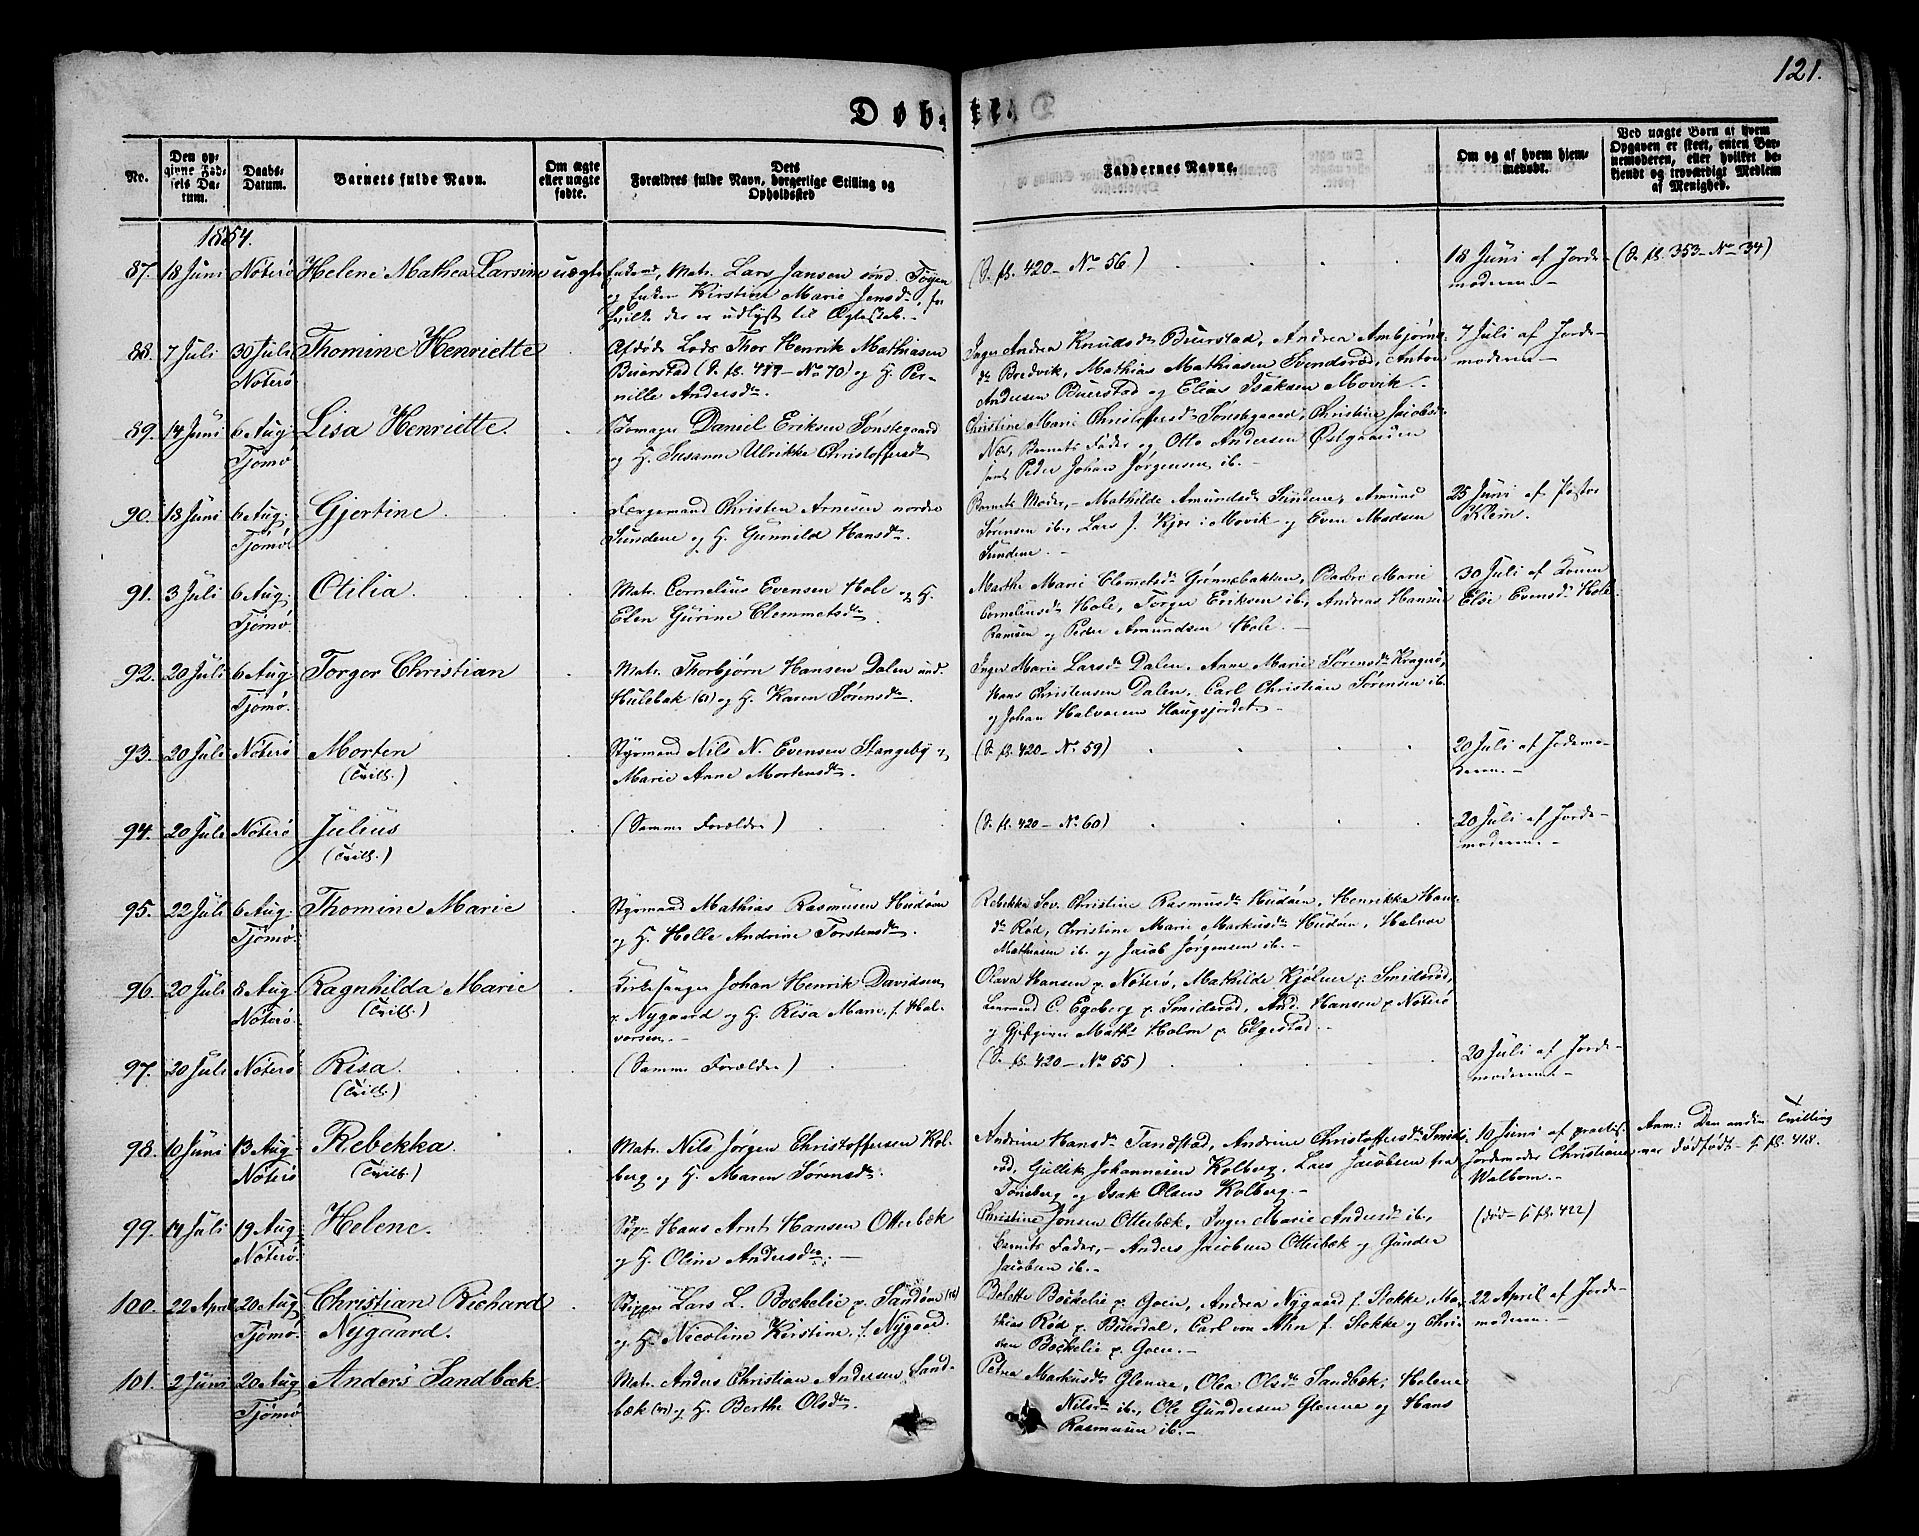 121.
Døbte
No.
Den opgivne Fødsels Datum.
Daabs-Datum.
Barnets fulde Navn.
Om ægte eller uægte fødte.
Dets Forældres fulde Navn, borgerlige Stilling og Opholdssted
Faddernes Navne.
Om og af hvem hjemmedøbt.
Ved uægte Børn af hvem Opgaven er skeet, enten Barnemoderen, eller hvilket bekjendt og troværdigt Medlem af Menighed.
1854.
87. 18 Juni Nøterø Helene Mathea Larsine uægte
Enkemd, Matr. Lars Jansen sønd. Tøgen
og Enken Kirstine Marie Jensdtr, for
hvilke der er udlyst til Ægteskab.-
(S. fl. 420 - No 56.)
18 Juni af Jorde-
moderen.-
(S. fl. 353 - No 34)
88. 7 Juli 30 Juli Nøterø Thomine Henriette
Afdøde Lods Thor Henrik Mathiasen
Buerstad (S. fl. 419 - No 70) og H. Per-
nille Andersdtr.
Inger Andrea Knudsdtr Buerstad, Andrea Ambjørns-
dtr Bredvik, Mathias Mathiasen Svendsrød, Anton
Andersen Buerstad og Elias Isaksen Movik.-
7 Juli af Jorde-
moderen-
89. 14 Juni 6 Aug. Tjømø Lisa Henriette.
Daniel Eriksen Sønstegaard
og H. Susanne Ulrikke Christoffersdtr
Christine Marie Christoffersdtr Sønstegaard, Christine Jacobsdtr
Næs, Barnets Fader og Otto Andersen Østgaarden
samt Peder Johan Jørgensen ib.-
90. 18 Juni 6 Aug. Tjømø Gjertine
Færgemand Christen Arnesen nordre
Sundene og H. Gunnild Hansdtr.
Barnets Moder,- Mathilde Amundsdtr Sundene, Amund
Sørensen ib., Lars J. Kjær i Movik- og Even Madsen
Sundene.-
25 Juni af
Klein.-
91. 3 Juli 6 Aug. Tjømø Otilia.
Matr. Cornelius Evensen Hole og H.
Elen Gurine Clemmetsdtr
Marthe Marie Clemetsdtr Grønnebakken, Barbro Marie
Corneliusdtr Hole, Torger Eriksen ib., Andreas Hansen
Ramsen og Peder Amundsen Hole.-
30 Juli af Konen
Else Evensdtr Hole.
92. 20 Juli 6 Aug. Tjømø. Torger Christian
Matr. Thorbjørn Hansen Dalen und.
Hulebak (61) og H. Karen Sørensdtr.
Inger Marie Larsdtr Dalen, Anne Marie Sørensdtr Kragerø,
Hans Christensen Dalen, Carl Christian Sørensen ib.
og Johan Halvorsen Haugsjordet.-
93. 20 Juli Nøterø Morten
(Tvill.)
Styrmand Nils N. Evensen Stangeby og
Marie Anne Mortensdtr.
(S. fl. 420 - No 59)
20 Juli af Jodemo-
deren.-
94. 20 Juli Nøterø Julius
(Tvill.)
(Samme Forældre)
(S. fl. 420 - No 60)
20 Juli af Jorde-
moderen.-
95. 22 Juli 6 Aug. Tjømø. Thomine Marie
Styrmand Mathias Rasmusen Hudøen
og H. Helle Andrine Torstensdtr.
Rebekka Sev. Christine Rasmusdtr Hudøen, Henrikka Han-
dtr Rød, Christine Marie Markusdtr Hudøen, Halvor
Mathisen ib. og Jacob Jørgensen ib.-
96. 20 Juli 8 Aug. Nøterø. Ragnhilda Marie
(Tvill.)
Kirkesanger Johan Henrik Davidsen
p. Nygaard og H. Risa Marie f. Hal-
vorsen.-
Olava Hansen p. Nøterø, Mathilde Kjølner p. Smidsrød,
Lensmand C. Egeberg p. Smidsrød, And. Hansen p. Nøterø
og Gjestgiver Maths Holm p. Elgestad.-
97. 20 Juli Nøterø Risa.
(Tvill.)
(Samme Forældre)
(S. fl. 420 - No 55)
20 Juli af Jorde-
moderen.-
98. 10 Juni 13 Aug. Nøterø Rebekka.
(Tvill.)
Matr. Nils Jørgen Christoffersen Kol-
berg og H. Maren Sørensdtr.
Andrine Hansdtr Tandstad, Andrine Christoffersdtr Smids-
rød, Gullik Johannesen Kolberg, Lars Jacobsen fra
Tønsberg og Isak Olsen Kolberg.-
10 Juni af practis.
Jordemoder Christiane
Walbom.-
Anm: Den anden Tvilling
var dødfødt - s. fl. 418.
99. 14 Juli 19 Aug. Nøterø. Helene.
Skp. Hans Arnt Hansen Otterbæk
og H. Oline Andersdtr.-
Christine Jonsen Otterbæk, Inger Marie Andersdtr ib.,
Barnets Fader,- Anders Jacobsen Otterbæk og Gunder
Jacobsen ib.-
(død - s. fl. 422)
100. 22 April 20 Aug. Tjømø. Christian Richard
Nygaard.
Skipper Lars L. Bockelie p. Sandøen
og H. Nicoline Kirstine f. Nygaard.
Bolette Bockelie p. Goen, Andrea Nygaard f. Stokke, Ma-
thias Rød p. Buerdal, Carl von Ahn f. Stokke og Chri-
sten Bockelie p. Goen.-
22 April af Jorde-
moderen.-
101. 2 Juni 20 Aug Tjømø Anders Sandbæk.
Matr. Anders Christian Andersen Sand-
bæk og H. Berthe Olsdtr.
Petra Markusdtr Glenne, Olea Olsdtr Sandbæk, Helene
Nilsdtr ib., Ole Gundersen Glenne og Hans
Rasmusen ib.-